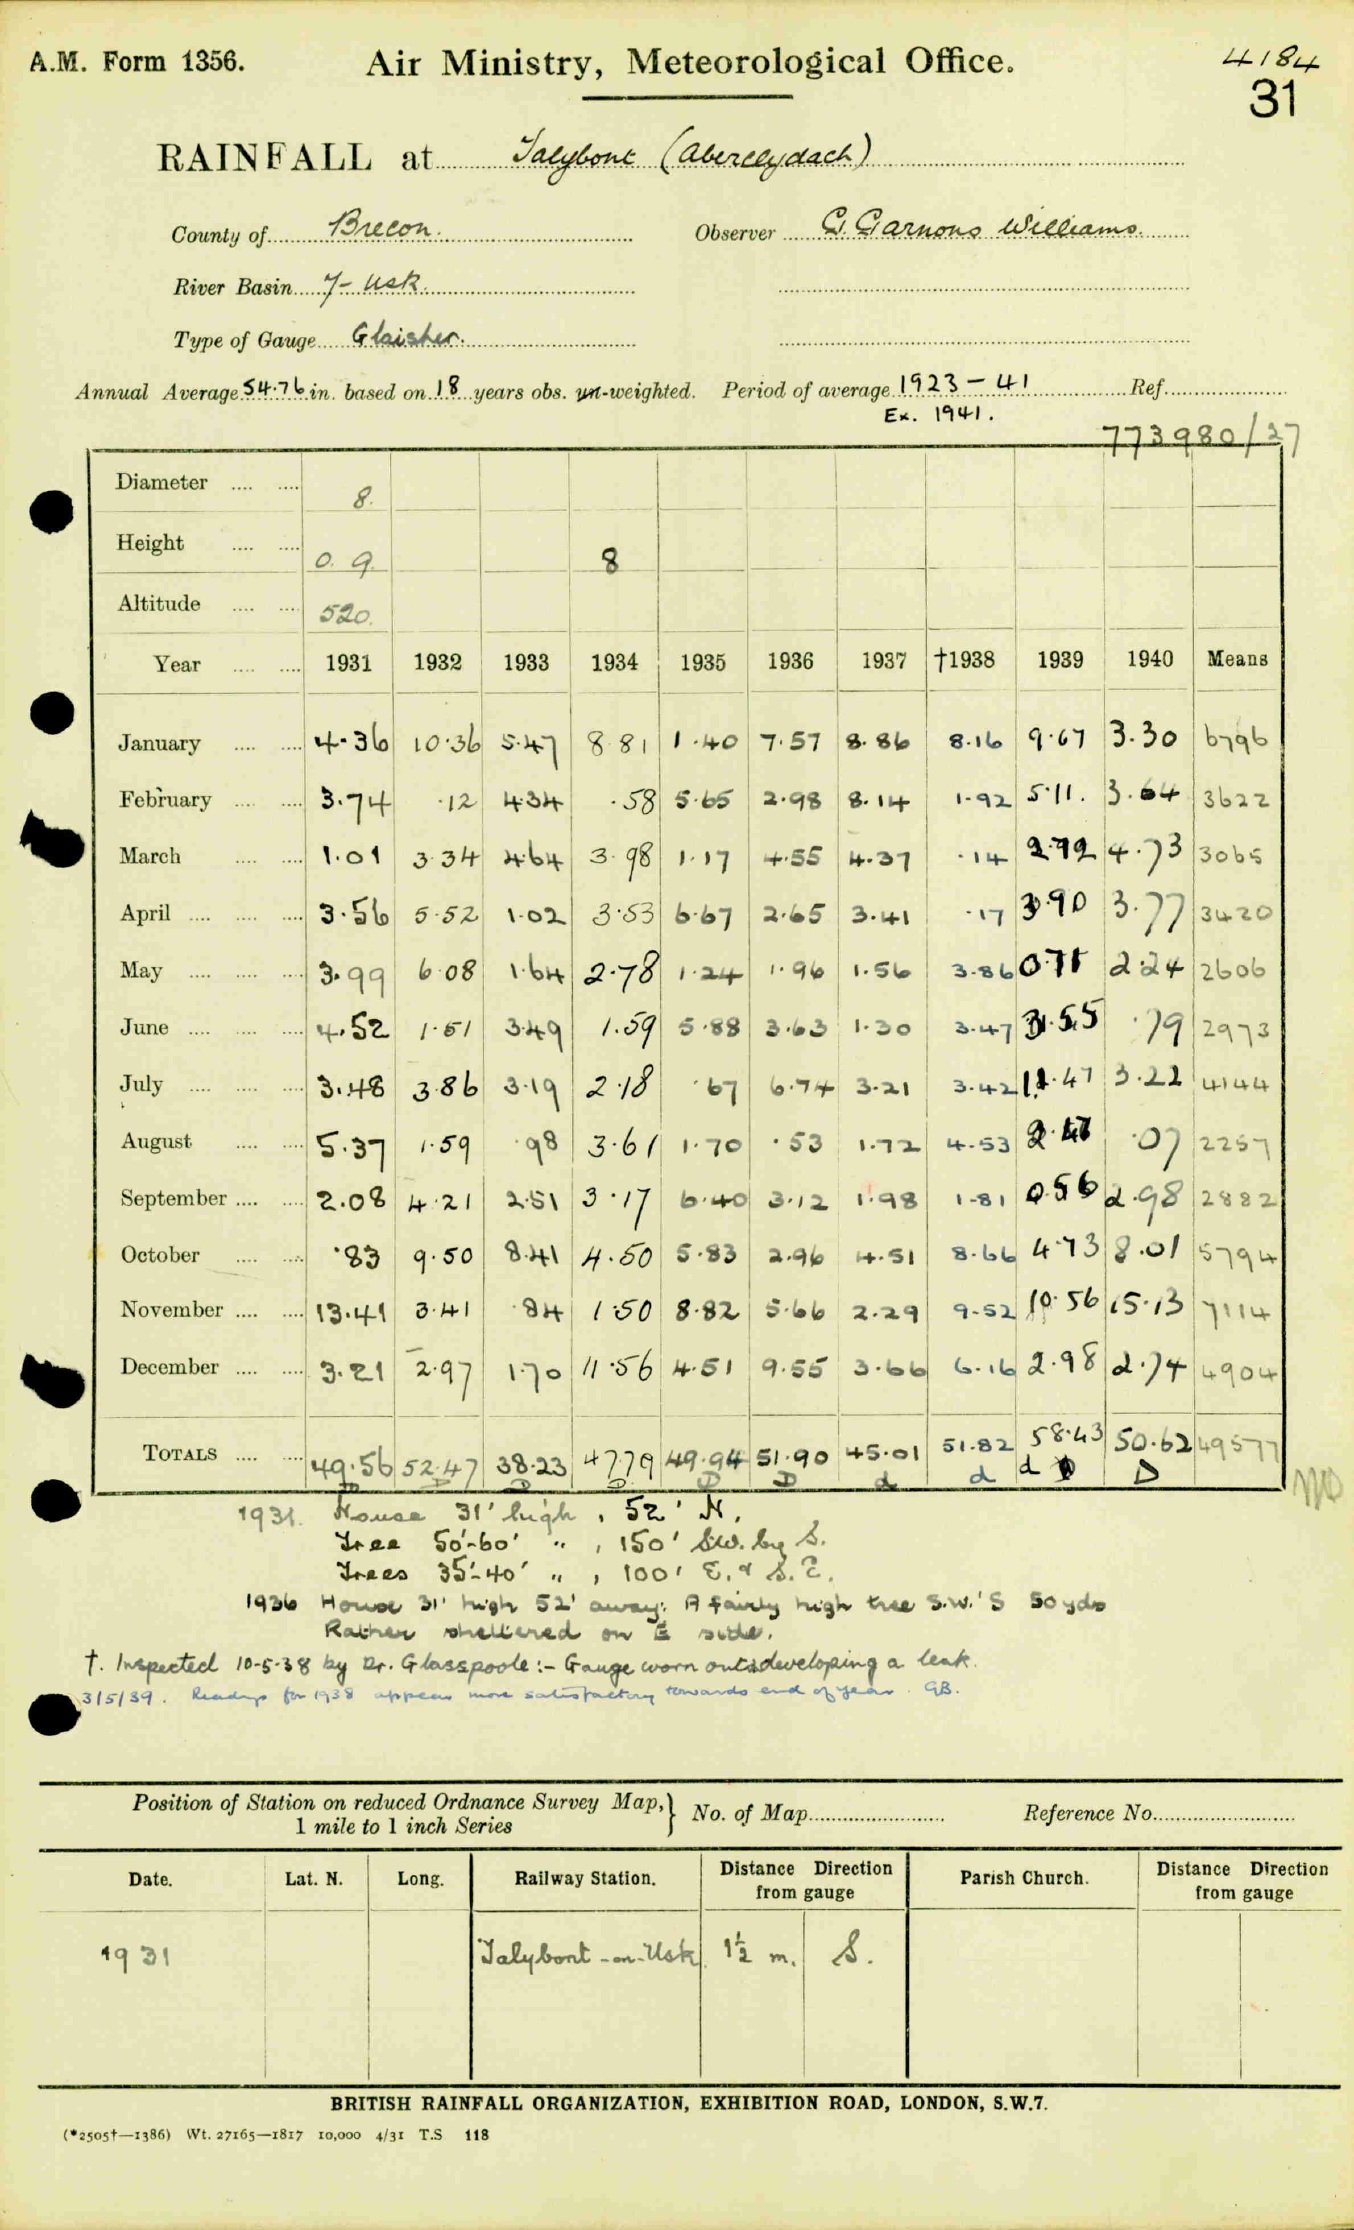 A.M. Form 1356. Air Ministry, Meteorological Office. 4184
31
RAINFALL at Talybont (Aberclydach)
County of Brecon. Observer G. Garnons Williams.
River Basin 7- Usk.
Type of Gauge Glaisher.
Annual Average 54.76 in. based on 18 years obs. un-weighted. Period of average 1923 - 41 Ref.
Ex. 1941.
773980/27
Diameter 8.
Height 0. 9. 8
Altitude 520.
Year 1931 1932 1933 1934 1935 1936 1937 †1938 1939 1940 Means
January 4.36 10.36 5.47 8.81 1.40 7.57 8.86 8.16 9.67 3.30 6796
February 3.74 .12 4.34 .58 5.65 2.98 8.14 1.92 5.11. 3.64 3622
March 1.01 3.34 4.64 3.98 1.17 4.55 4.37 .14 2.72 4.73 3065
April 3.56 5.52 1.02 3.53 6.67 2.65 3.41 .17 3.90 3.77 3420
May 3.99 6.08 1.64 2.78 1.24 1.96 1.56 3.86 0.71 2.24 2606
June 4.52 1.51 3.49 1.59 5.88 3.63 1.30 3.47 3.55 .79 2973
July 3.48 3.86 3.19 2.18 .67 6.74 3.21 3.42 11.47 3.22 4144
August 5.37 1.59 .98 3.61 1.70 .53 1.72 4.53 2.47 .07 2257
September 2.08 4.21 2.51 3.17 6.40 3.12 1.98 1.81 0.56 2.98 2882
October .83 9.50 8.41 4.50 5.83 2.96 4.51 8.66 4.73 8.01 5794
November 13.41 3.41 .84 1.50 8.82 5.66 2.29 9.52 10.56 15.13 7114
December 3.21 2.97 1.70 11.56 4.51 9.55 3.66 6.16 2.98 2.74 4904
TOTALS 49.56 52.47 38.23 47.79 49.94 51.90 45.01 51.82 58.43 50.62 49577
D D D D D D d d d D
1931. House 31' high, 52' N.
Tree 50'-60' " , 150' SW. by S.
Trees 35'-40' " , 100' E. & S.E.
1936 House 31' high 52' away. A fairly high tree S.W.'S 50 yds
Rather sheltered on E side.
†. Inspected 10-5-38 by Dr. Glasspoole:- Gauge worn out & developing a leak.
3/5/39. Readings for 1938 appear more satisfactory towards end of year. GB.
Position of Station on reduced Ordnance Survey Map,} No. of Map Reference No.
1 mile to 1 inch Series
Date. Lat. N. Long. Railway Station. Distance Direction from gauge Parish Church. Distance Direction from gauge
1931 Talybont-on-Usk 1½ m. S.
BRITISH RAINFALL ORGANIZATION, EXHIBITION ROAD, LONDON, S.W.7.
(*2505†—1386) Wt. 27165—1817 10,000 4/31 T.S 118